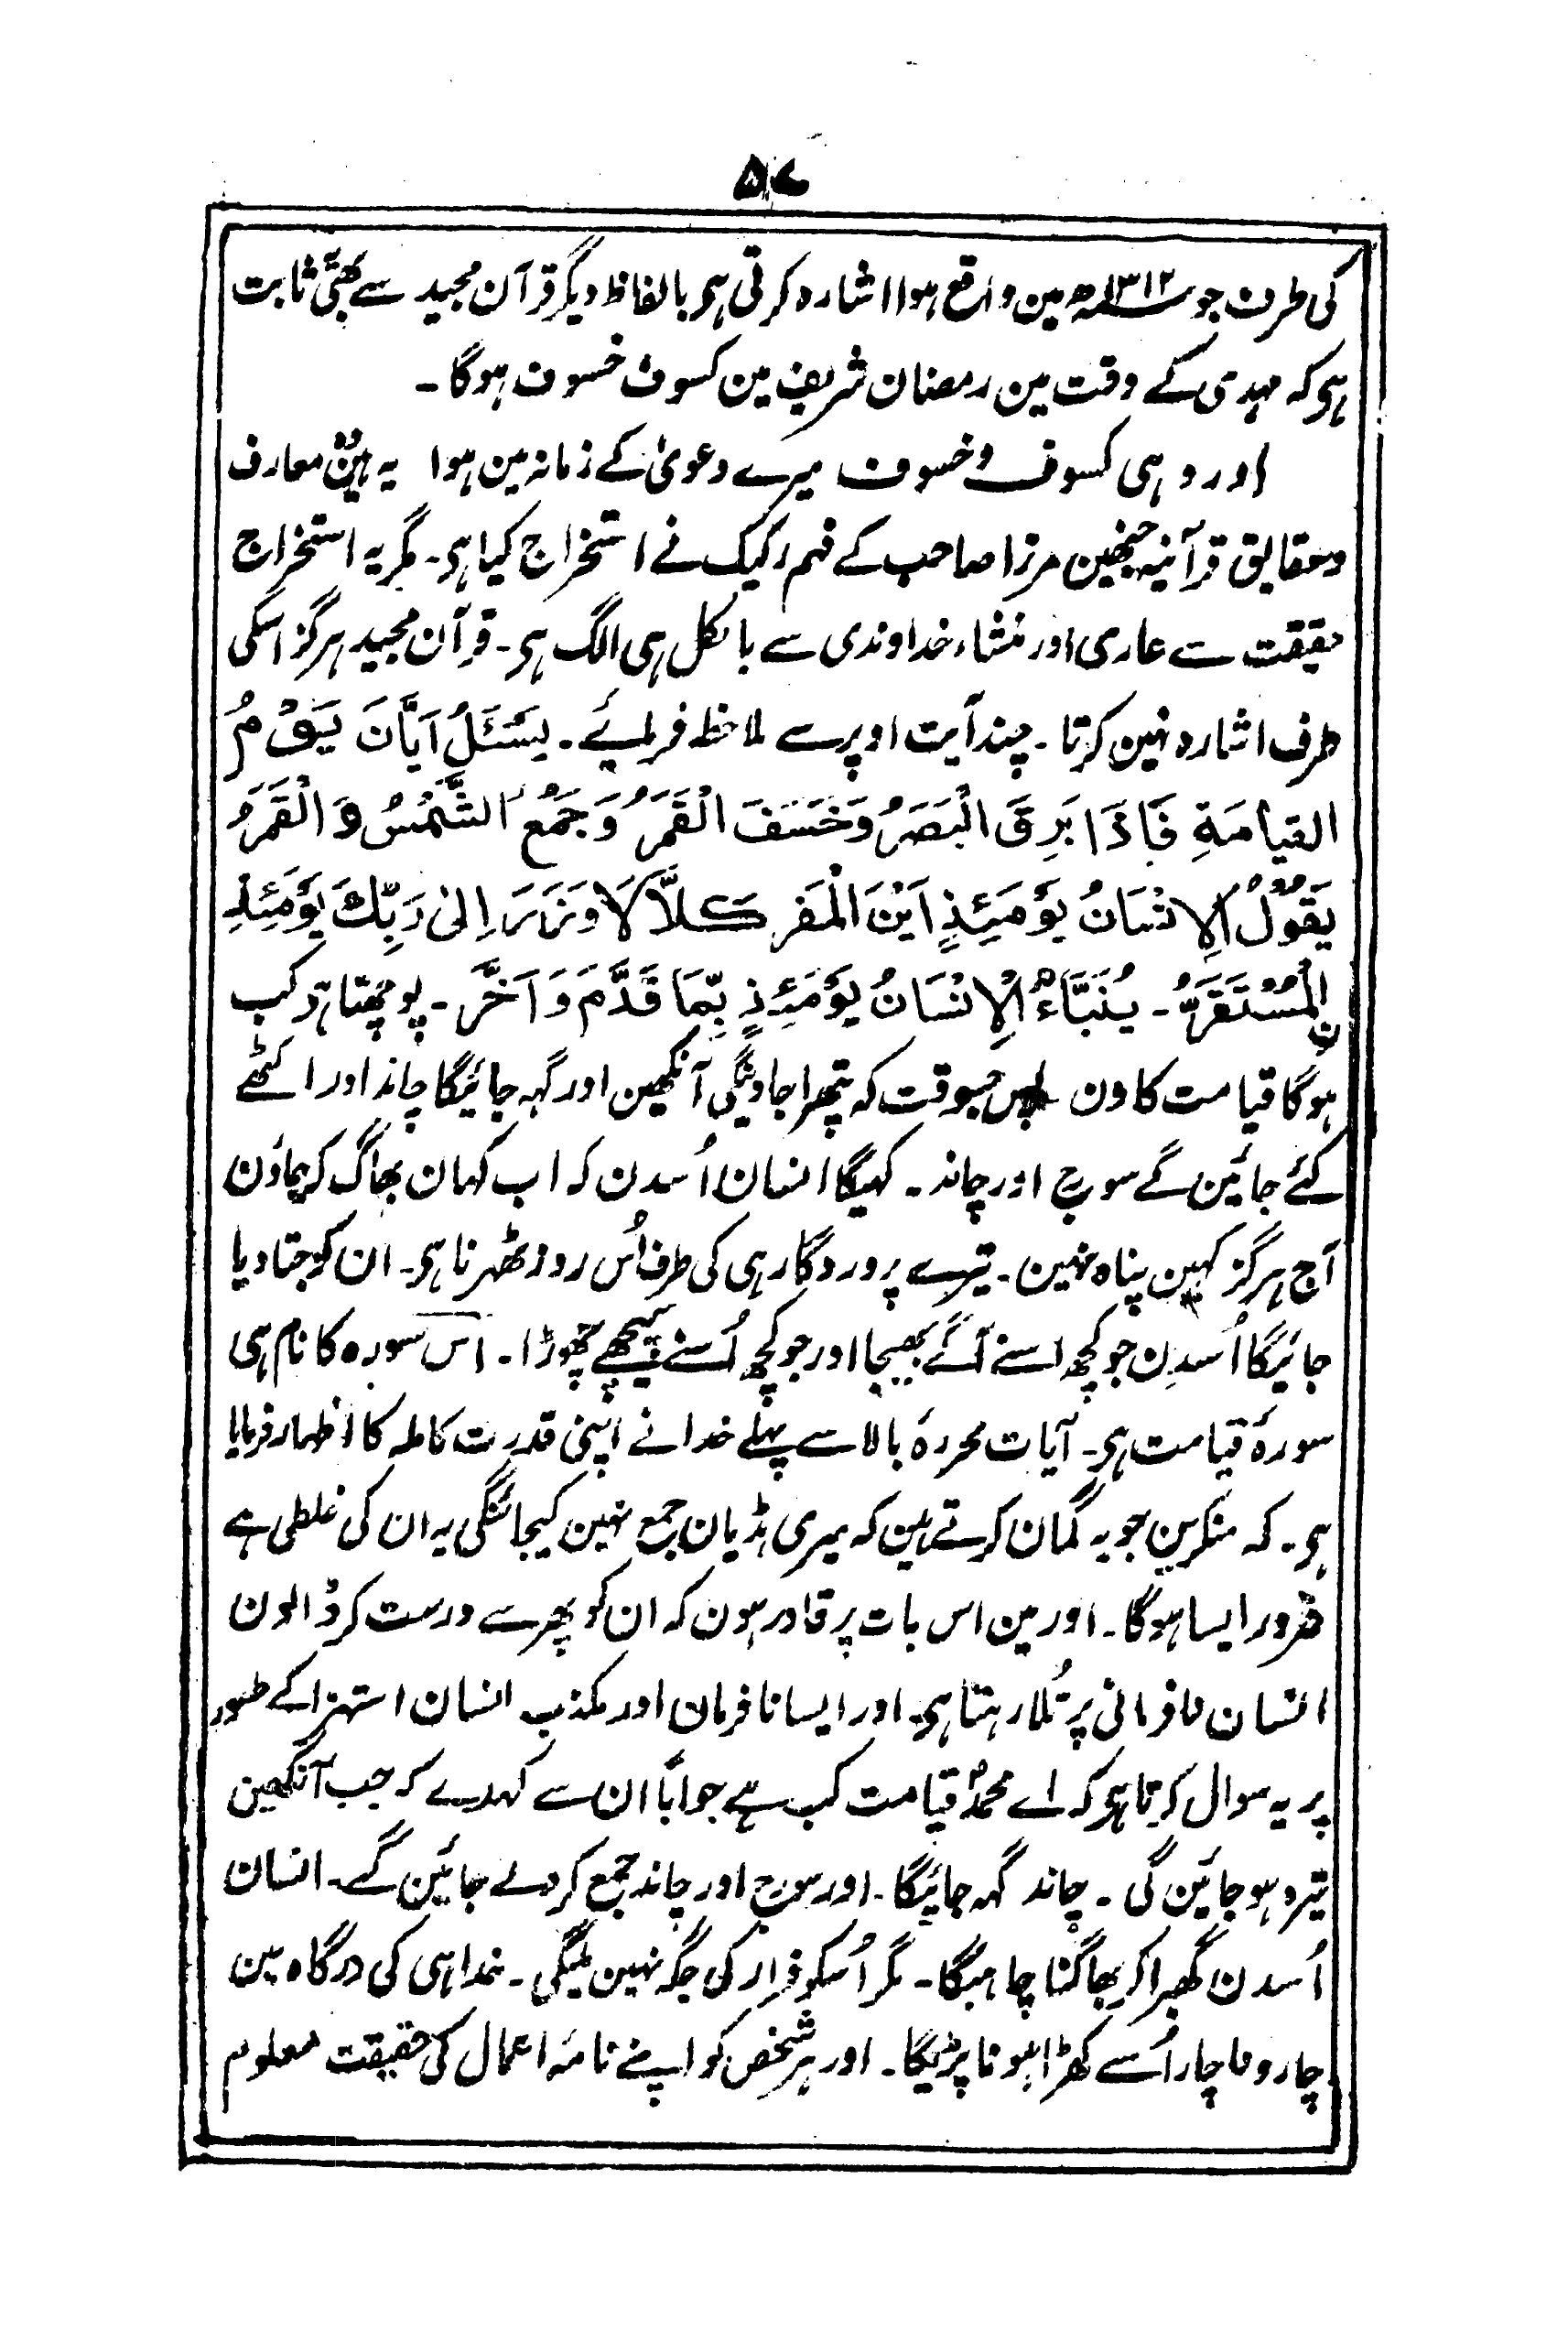 ۵۷
کی طرف جو ۱۳۱۲ھ مین واقع ہوا اشارہ کرتی ہی بالفاظ دیگر قرآن مجید سے بھی ثابت
ہی کہ مہدی کے وقت مین رمضان شریف مین کسوف خسوف ہوگا۔
اور وہی کسوف و خسوف میرے دعویٰ کے زمانہ مین ہوا یہ ہین معارف
وحقایق قرآنیہ جنھین مرزا صاحب کے فہم رکیک نے استخراج کیا ہی۔ مگر یہ استخراج
حقیقت سے عاری اور منشاء خداوندی سے بالکل ہی الگ ہی۔ قرآن مجید ہرگز اسکی
طرف اشارہ نہین کرتا۔ چند آیت اوپر سے ملاحظہ فرمائیے۔ یَسْئَلُ اَیَّانَ یَوْمُ
القیامَةِ فَاِذَا بَرِقَ الْبَصَرُ وَخَسَفَ الْقَمَرُ وَجُمِعَ الشَّمْسُ وَالْقَمَرُ
یَقُوْلُ الْاِنْسَانُ یَوْمَئِذٍ اَیْنَ الْمَفَر کَلاَّ لَا وَزَرَ اِلیٰ رَبِّكَ یَوْمَئِذِ
نِ الْمُسْتَقَرُّ۔ یُنَبَّاءُ الْاِنْسَانُ یَوْمَئِذٍ بِّمَا قَدَّمَ وَ اَخَّرَ۔ پوچھتا ہی کب
ہوگا قیامت کا دن پس جسوقت کہ پتھرا جاوینگی آنکھین اور گہہ جائیگا چاند اور اکٹھے
کئے جائین گے سورج اور چاند۔ کہیگا انسان اُسدن کہ اب کہان بھاگ کر جاؤن
آج ہرگز کہین پناہ نہین۔ تیرے پروردگار ہی کی طرف اُس روز ٹھہرنا ہی۔ ان کو جتا دیا
جائیگا اُسدن جو کچھ اسنے آگے بھیجا اور جو کچھ اُسنے پیچھے چھوڑا۔ اس سورہ کا نام ہی
سورۂ قیامت ہی۔ آیات محررۂ بالا سے پہلے خدا نے اپنی قدرت کاملہ کا اظہار فرمایا
ہی۔ کہ منکرین جو یہ گمان کرتے ہین کہ میری ہڈیان جمع نہین کیجائنگی یہ ان کی غلطی ہے
ضرور ایسا ہوگا۔ اور مین اس بات پر قادر ہون کہ ان کو پھر سے درست کر ڈالون
انسان نافرمانی پر تُلا رہتا ہی۔ اور ایسا نافرمان اور مکذب انسان استہزا کے طور
پر یہ سوال کرتا ہی کہ اے محمدؐ قیامت کب ہے جواباً ان سے کہدے کہ جب آنکھین
تیرہ ہو جائین گی۔ چاند گہہ جائیگا۔ اور سورج اور چاند جمع کر دئے جائین گے۔ انسان
اُسدن گھبرا کر بھاگنا چاہیگا۔ مگر اُسکو فرار کی جگہ نہین ملیگی۔ خدا ہی کی درگاہ مین
چار و ناچار اُسے کھڑا ہونا پڑیگا۔ اور ہر شخص کو اپنے نامۂ اعمال کی حقیقت معلوم